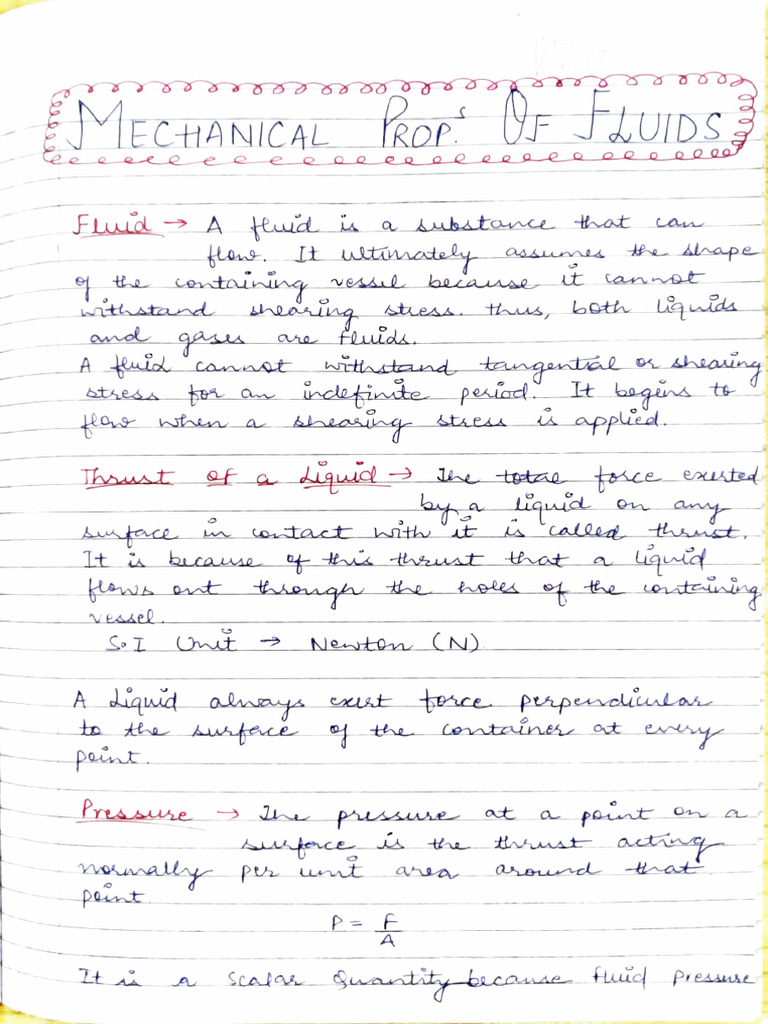 MECHANICAL PROP.s OF FLUIDS
Fluid → A fluid is a substance that can
flow. It ultimately assumes the shape
of the containing vessel because it cannot
withstand shearing stress. thus, both liquids
and gases are fluids.
A fluid cannot withstand tangential or shearing
stress for an indefinite period. It begins to
flow when a shearing stress is applied.
Thrust of a Liquid → The total force exerted
by a liquid on any
surface in contact with it is called thrust.
It is because of this thrust that a liquid
flows out through the holes of the containing
vessel.
S.I Unit → Newton (N)
A Liquid always exert force perpendicular
to the surface of the container at every
point.
Pressure → The pressure at a point on a
surface is the thrust acting
normally per unit area around that
point
P = F/A
It is a scalar Quantity because fluid pressure